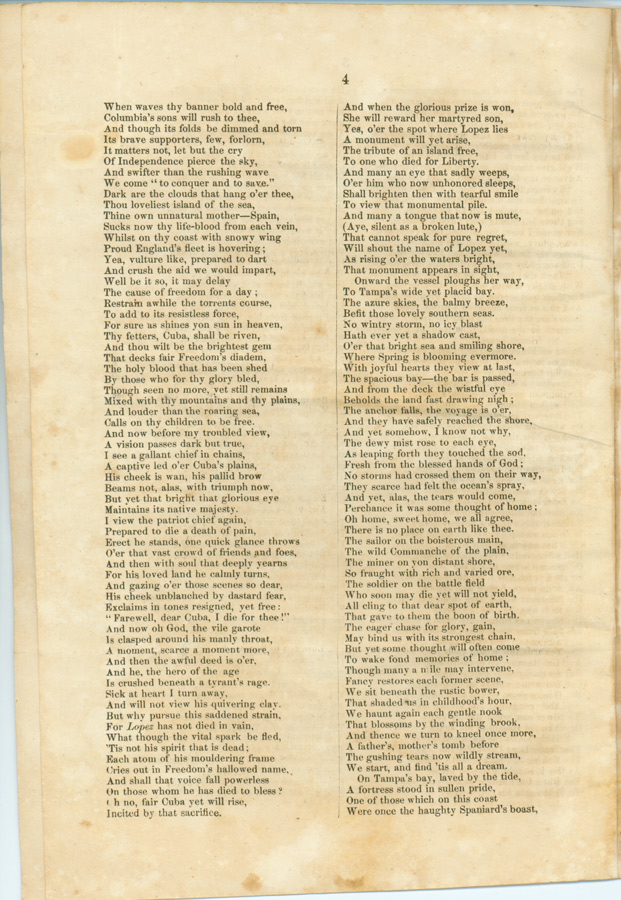 4
When waves thy banner bold and free,
Columbia's sons will rush to thee,
And though its folds be dimmed and torn
Its brave supporters, few, forlorn,
It matters not, let but the cry
Of Independence pierce the sky,
And swifter than the rushing wave
We come "to conquer and to save."
Dark are the clouds that hang o'er thee,
Thou loveliest island of the sea,
Thine own unnatural mother—Spain,
Sucks now thy life-blood from each vein,
Whilst on thy coast with snowy wing
Proud England's fleet is hovering;
Yea, vulture like, prepared to dart
And crush the aid we would impart,
Well be it so, it may delay
The cause of freedom for a day;
Restrain awhile the torrents course,
To add to its resistless force,
For sure as shines yon sun in heaven,
Thy fetters, Cuba, shall be riven,
And thou wilt be the brightest gem
That decks fair Freedom's diadem,
The holy blood that has been shed
By those who for thy glory bled,
Though seen no more, yet still remains
Mixed with thy mountains and thy plains,
And louder than the roaring sea,
Calls on thy children to be free.
And now before my troubled view,
A vision passes dark but true,
I see a gallant chief in chains,
A captive led o'er Cuba's plains,
His cheek is wan, his pallid brow
Beams not, alas, with triumph now,
But yet that bright that glorious eye
Maintains its native majesty.
I view the patriot chief again,
Prepared to die a death of pain,
Erect he stands, one quick glance throws
O'er that vast crowd of friends and foes,
And then with soul that deeply yearns
For his loved land he calmly turns,
And gazing o'er those scenes so dear,
His cheek unblanched by dastard fear,
Exclaims in tones resigned, yet free:
"Farewell, dear Cuba, I die for thee!"
And now oh God, the vile garote
Is clasped around his manly throat,
A moment, scarce a moment more,
And then the awful deed is o'er,
And he, the hero of the age
Is crushed beneath a tyrant's rage.
Sick at heart I turn away,
And will not view his quivering clay.
But why pursue this saddened strain,
For Lopez has not died in vain,
What though the vital spark be fled,
'Tis not his spirit that is dead;
Each atom of his mouldering frame
Cries out in Freedom's hallowed name,
And shall that voice fall powerless
On those whom he has died to bless?
h no, fair Cuba yet will rise,
Incited by that sacrifice.
And when the glorious prize is won,
She will reward her martyred son,
Yes, o'er the spot where Lopez lies
A monument will yet arise,
The tribute of an island free,
To one who died for Liberty.
And many an eye that sadly weeps,
O'er him who now unhonored sleeps,
Shall brighten then with tearful smile
To view that monumental pile.
And many a tongue that now is mute,
(Aye, silent as a broken lute,)
That cannot speak for pure regret,
Will shout the name of Lopez yet,
As rising o'er the waters bright,
That monument appears in sight,
Onward the vessel ploughs her way,
To Tampa's wide yet placid bay.
The azure skies, the balmy breeze,
Befit those lovely southern seas.
No wintry storm, no icy blast
Hath ever yet a shadow cast,
O'er that bright sea and smiling shore,
Where Spring is blooming evermore.
With joyful hearts they view at last,
The spacious bay—the bar is passed,
And from the deck the wistful eye
Beholds the land fast drawing nigh;
The anchor falls, the voyage is o'er,
And they have safely reached the shore,
And yet somehow, I know not why,
The dewy mist rose to each eye,
As leaping forth they touched the sod,
Fresh from the blessed hands of God;
No storms had crossed them on their way,
They scarce had felt the ocean's spray,
And yet, alas, the tears would come,
Perchance it was some thought of home;
Oh home, sweet home, we all agree,
There is no place on earth like thee.
The sailor on the boisterous main,
The wild Commanche of the plain,
The miner on yon distant shore,
So fraught with rich and varied ore,
The soldier on the battle field
Who soon may die yet will not yield,
All cling to that dear spot of earth,
That gave to them the boon of birth.
The eager chase for glory, gain,
May bind us with its strongest chain,
But yet some thought will often come
To wake fond memories of home;
Though many a mile may intervene,
Fancy restores each former scene,
We sit beneath the rustic bower,
That shaded us in childhood's hour,
We haunt again each gentle nook
That blossoms by the winding brook,
And thence we turn to kneel once more,
A father's, mother's tomb before
The gushing tears now wildly stream,
We start, and find 'tis all a dream.
On Tampa's bay, laved by the tide,
A fortress stood in sullen pride,
One of those which on this coast
Were once the haughty Spaniard's boast,